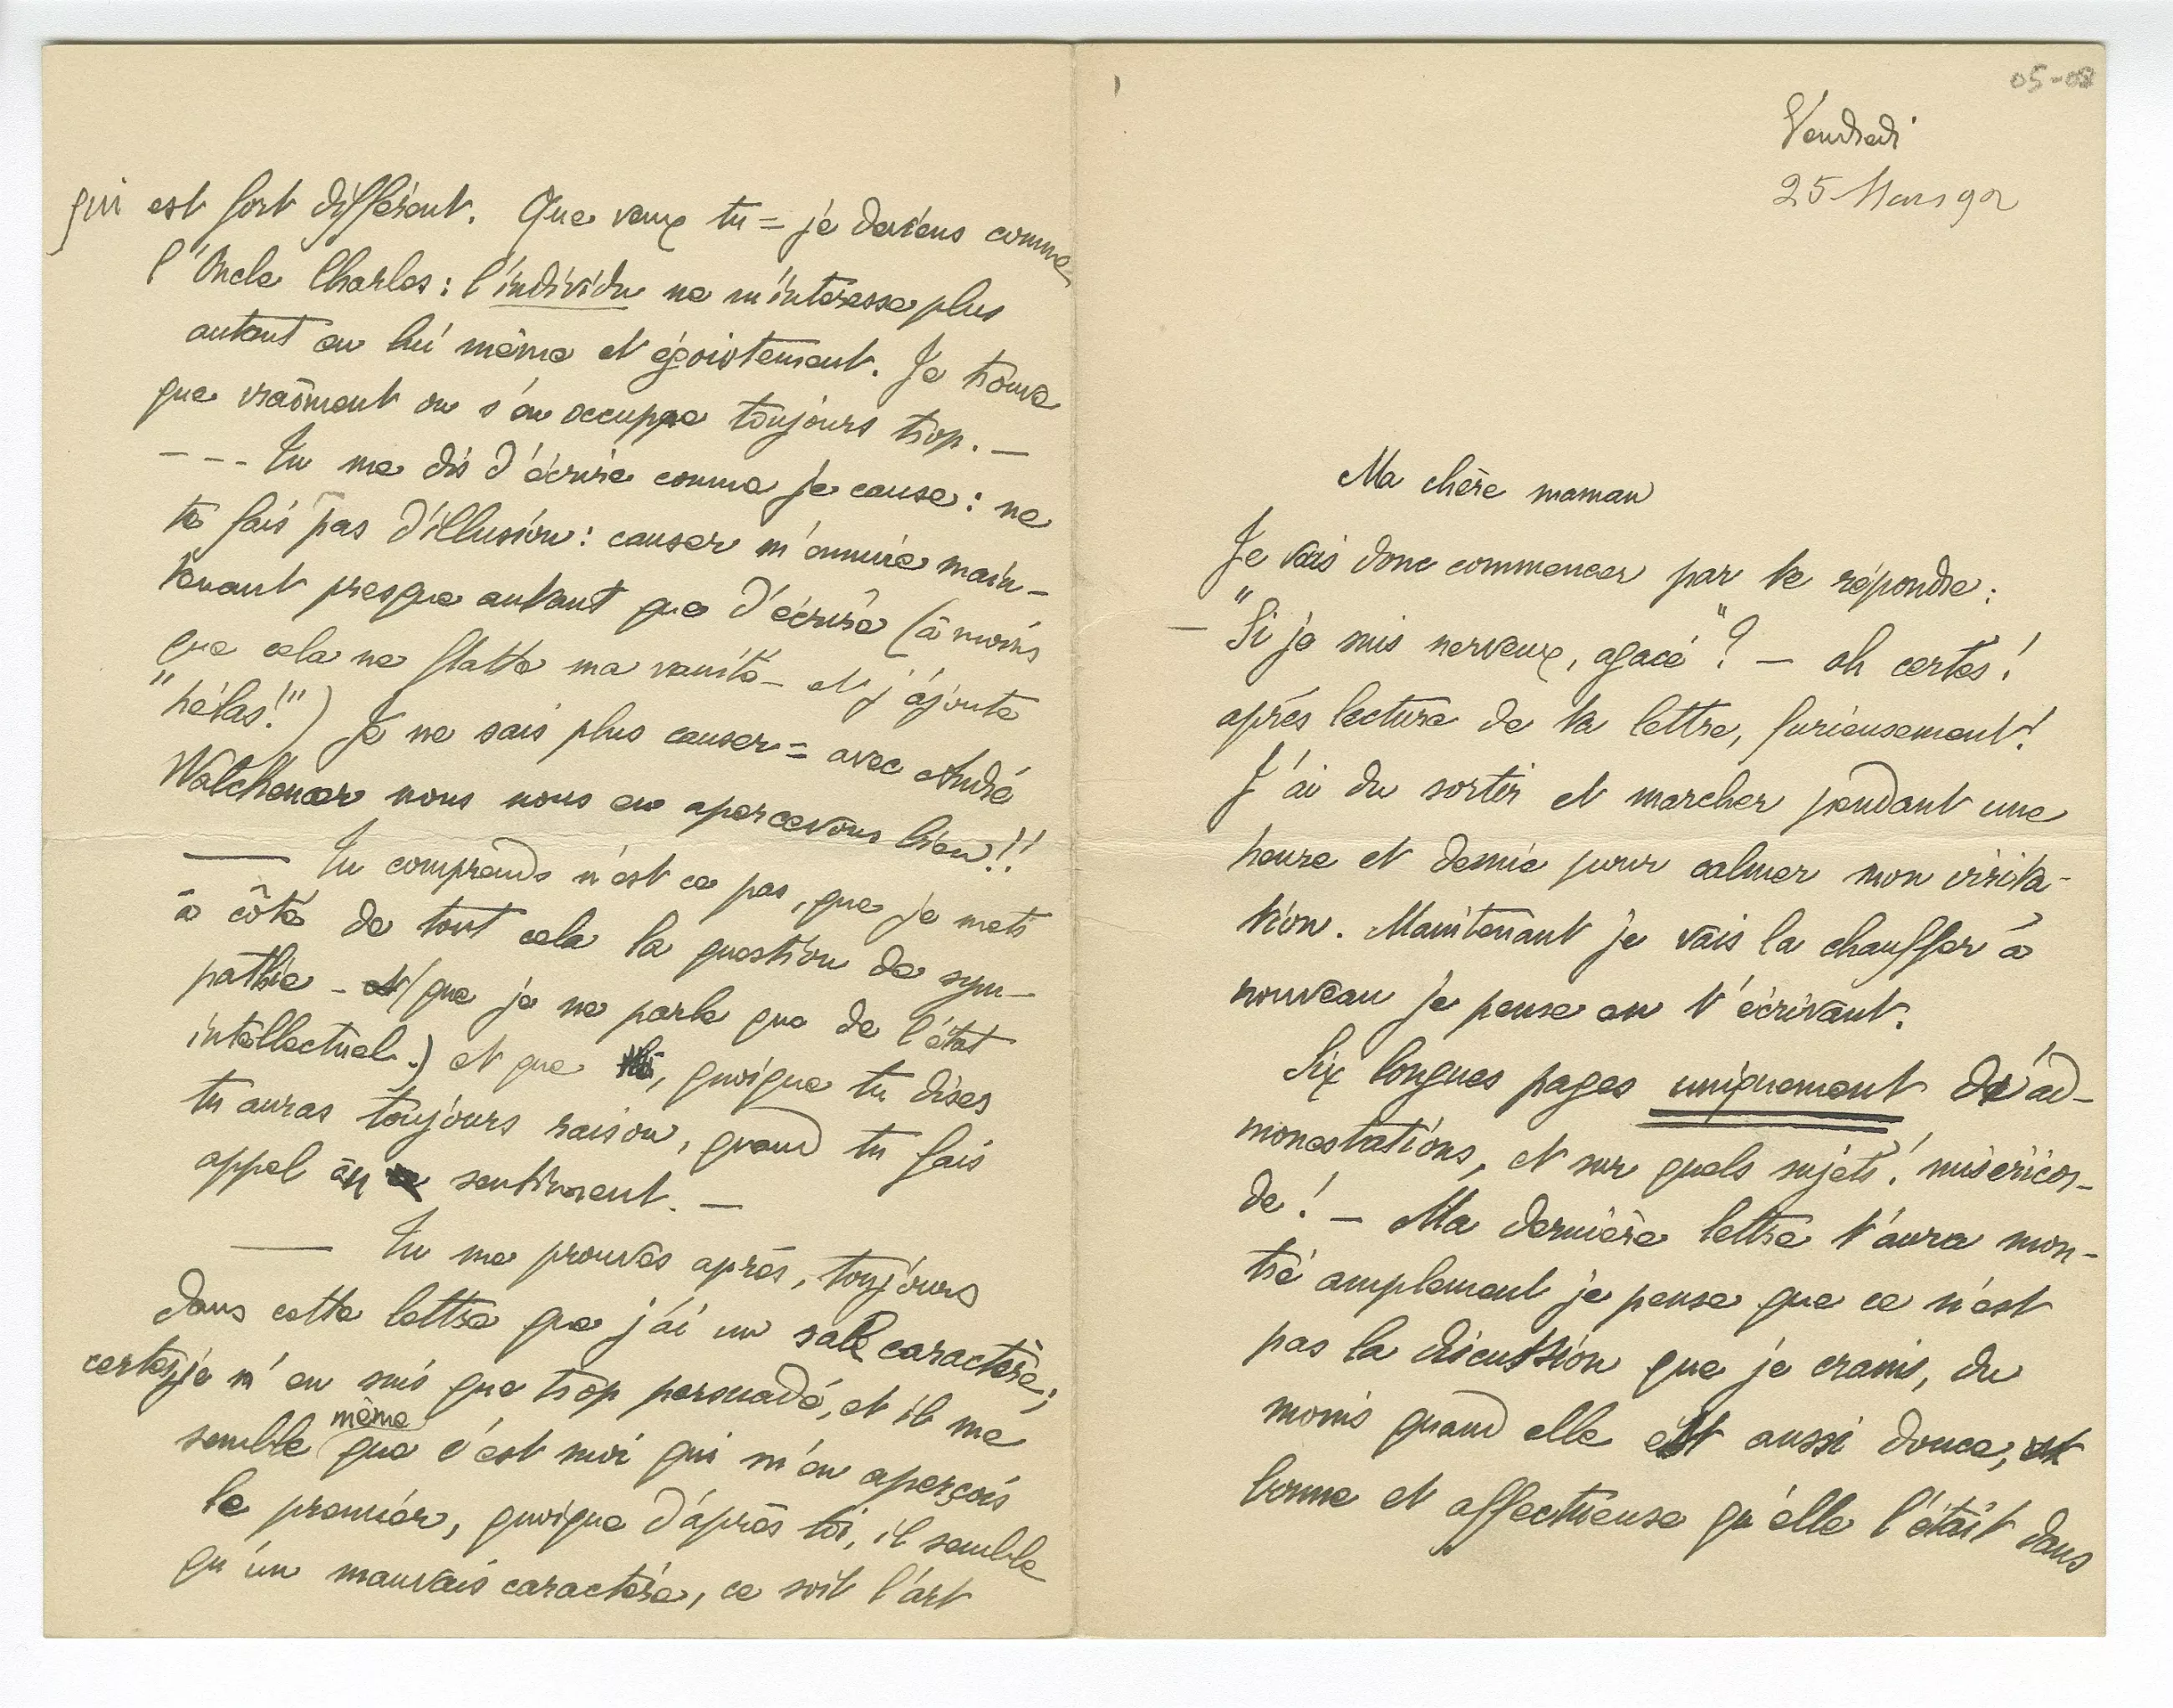 05-08
Vendredi
25 Mars 92
Ma chère maman
Je vais donc commencer par te répondre :
— "Si je suis nerveux, agacé" ? — oh certes !
après lecture de ta lettre, furieusement !
J'ai du sortir et marcher pendant une
heure et demie pour calmer mon irrita-
tion. Maintenant je vais la chauffer à
nouveau je pense en t'écrivant.
Six longues pages uniquement d'ad-
monestations, et sur quels sujets ! miséricor-
de ! — Ma dernière lettre t'aura mon-
tré amplement je pense que ce n'est
pas la discussion que je crains, du
moins quand elle est aussi douce, et
bonne et affectueuse qu'elle l'était dans
qui est fort différent. Que veux tu = je deviens comme
l'Oncle Charles : l'individu ne m'intéresse plus
autant en lui même et égoistement. Je trouve
que vraiment on s'en occuppe toujours trop. —
- - - Tu me dis d'écrire comme je cause : ne
te fais pas d'illusion : causer m'ennuie main-
tenant presque autant que d'écrire (à moins
que cela ne flatte ma vanité — et j'ajoute
"hélas !") Je ne sais plus causer = avec André
Walckenaer nous nous en apercevons bien !!
— Tu comprends n'est ce pas, que je mets
à côté de tout cela la question de sym-
pathie - (que je ne parle que de l'état
intellectuel.) et que , quoique tu dises
tu auras toujours raison, quand tu fais
appel au sentiment. —
— Tu me prouves après, toujours
dans cette lettre que j'ai un sale caractère ;
certes, je n'en suis que trop persuadé, et il me
semble même que c'est moi qui m'en aperçois
le premier, quoique d'après toi, il semble
qu'un mauvais caractère, ce soit l'art